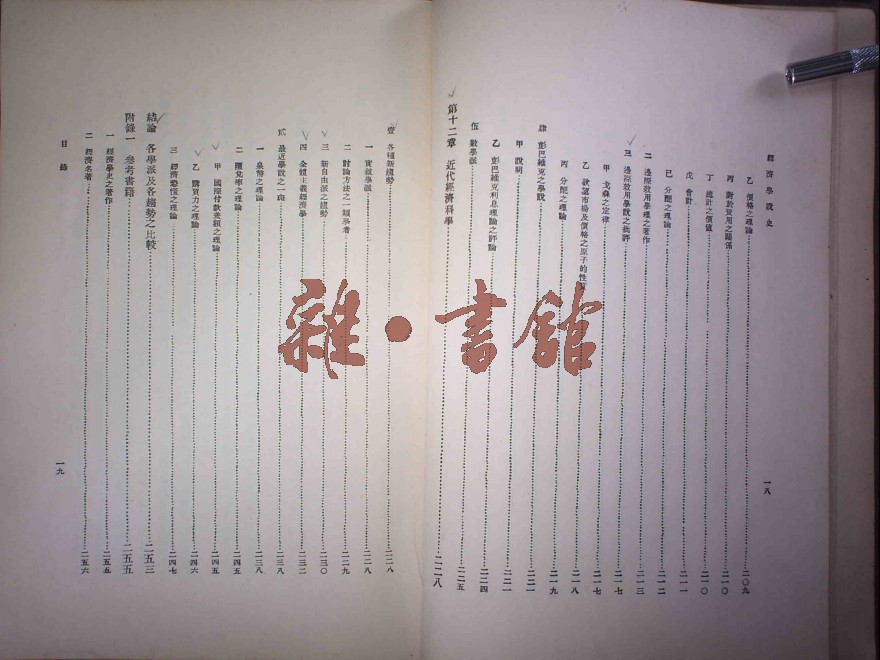 經濟學說史
一八
乙 價格之理論 二〇九
丙 對於費用之關係 二一〇
丁 總計之價值 二一〇
戊 會計 二一一
己 分配之理論 二一二
二 邊際效用學理之著作 二一三
三 邊際效用學說之批評 二一七
甲 戈森之定律 二一七
乙 欲望市場及價格之原子的性 二一八
丙 分配之理論 二一九
肆 彭巴維克之學說 二二一
甲 說明 二二一
乙 彭巴維克利息理論之評論 二二四
伍 數學派 二二五
第十二章 近代經濟科學 二二八
壹 各種新趨勢 二二八
一 實證學派 二二八
二 討論方法之一類學者 二二九
三 新自由派之趨勢 二三〇
四 全體主義經濟學 二三二
貳 最近學說之一班 二三八
一 泉幣之理論 二三八
二 匯兌率之理論 二四五
甲 國際付款差額之理論 二四五
乙 購買力之理論 二四六
三 經濟恐慌之理論 二四七
結論 各學派及各趨勢之比較 二五三
附錄一 參考書籍 二五五
一 經濟學史之著作 二五五
二 經濟名著 二五六
目錄
一九
雜·書館